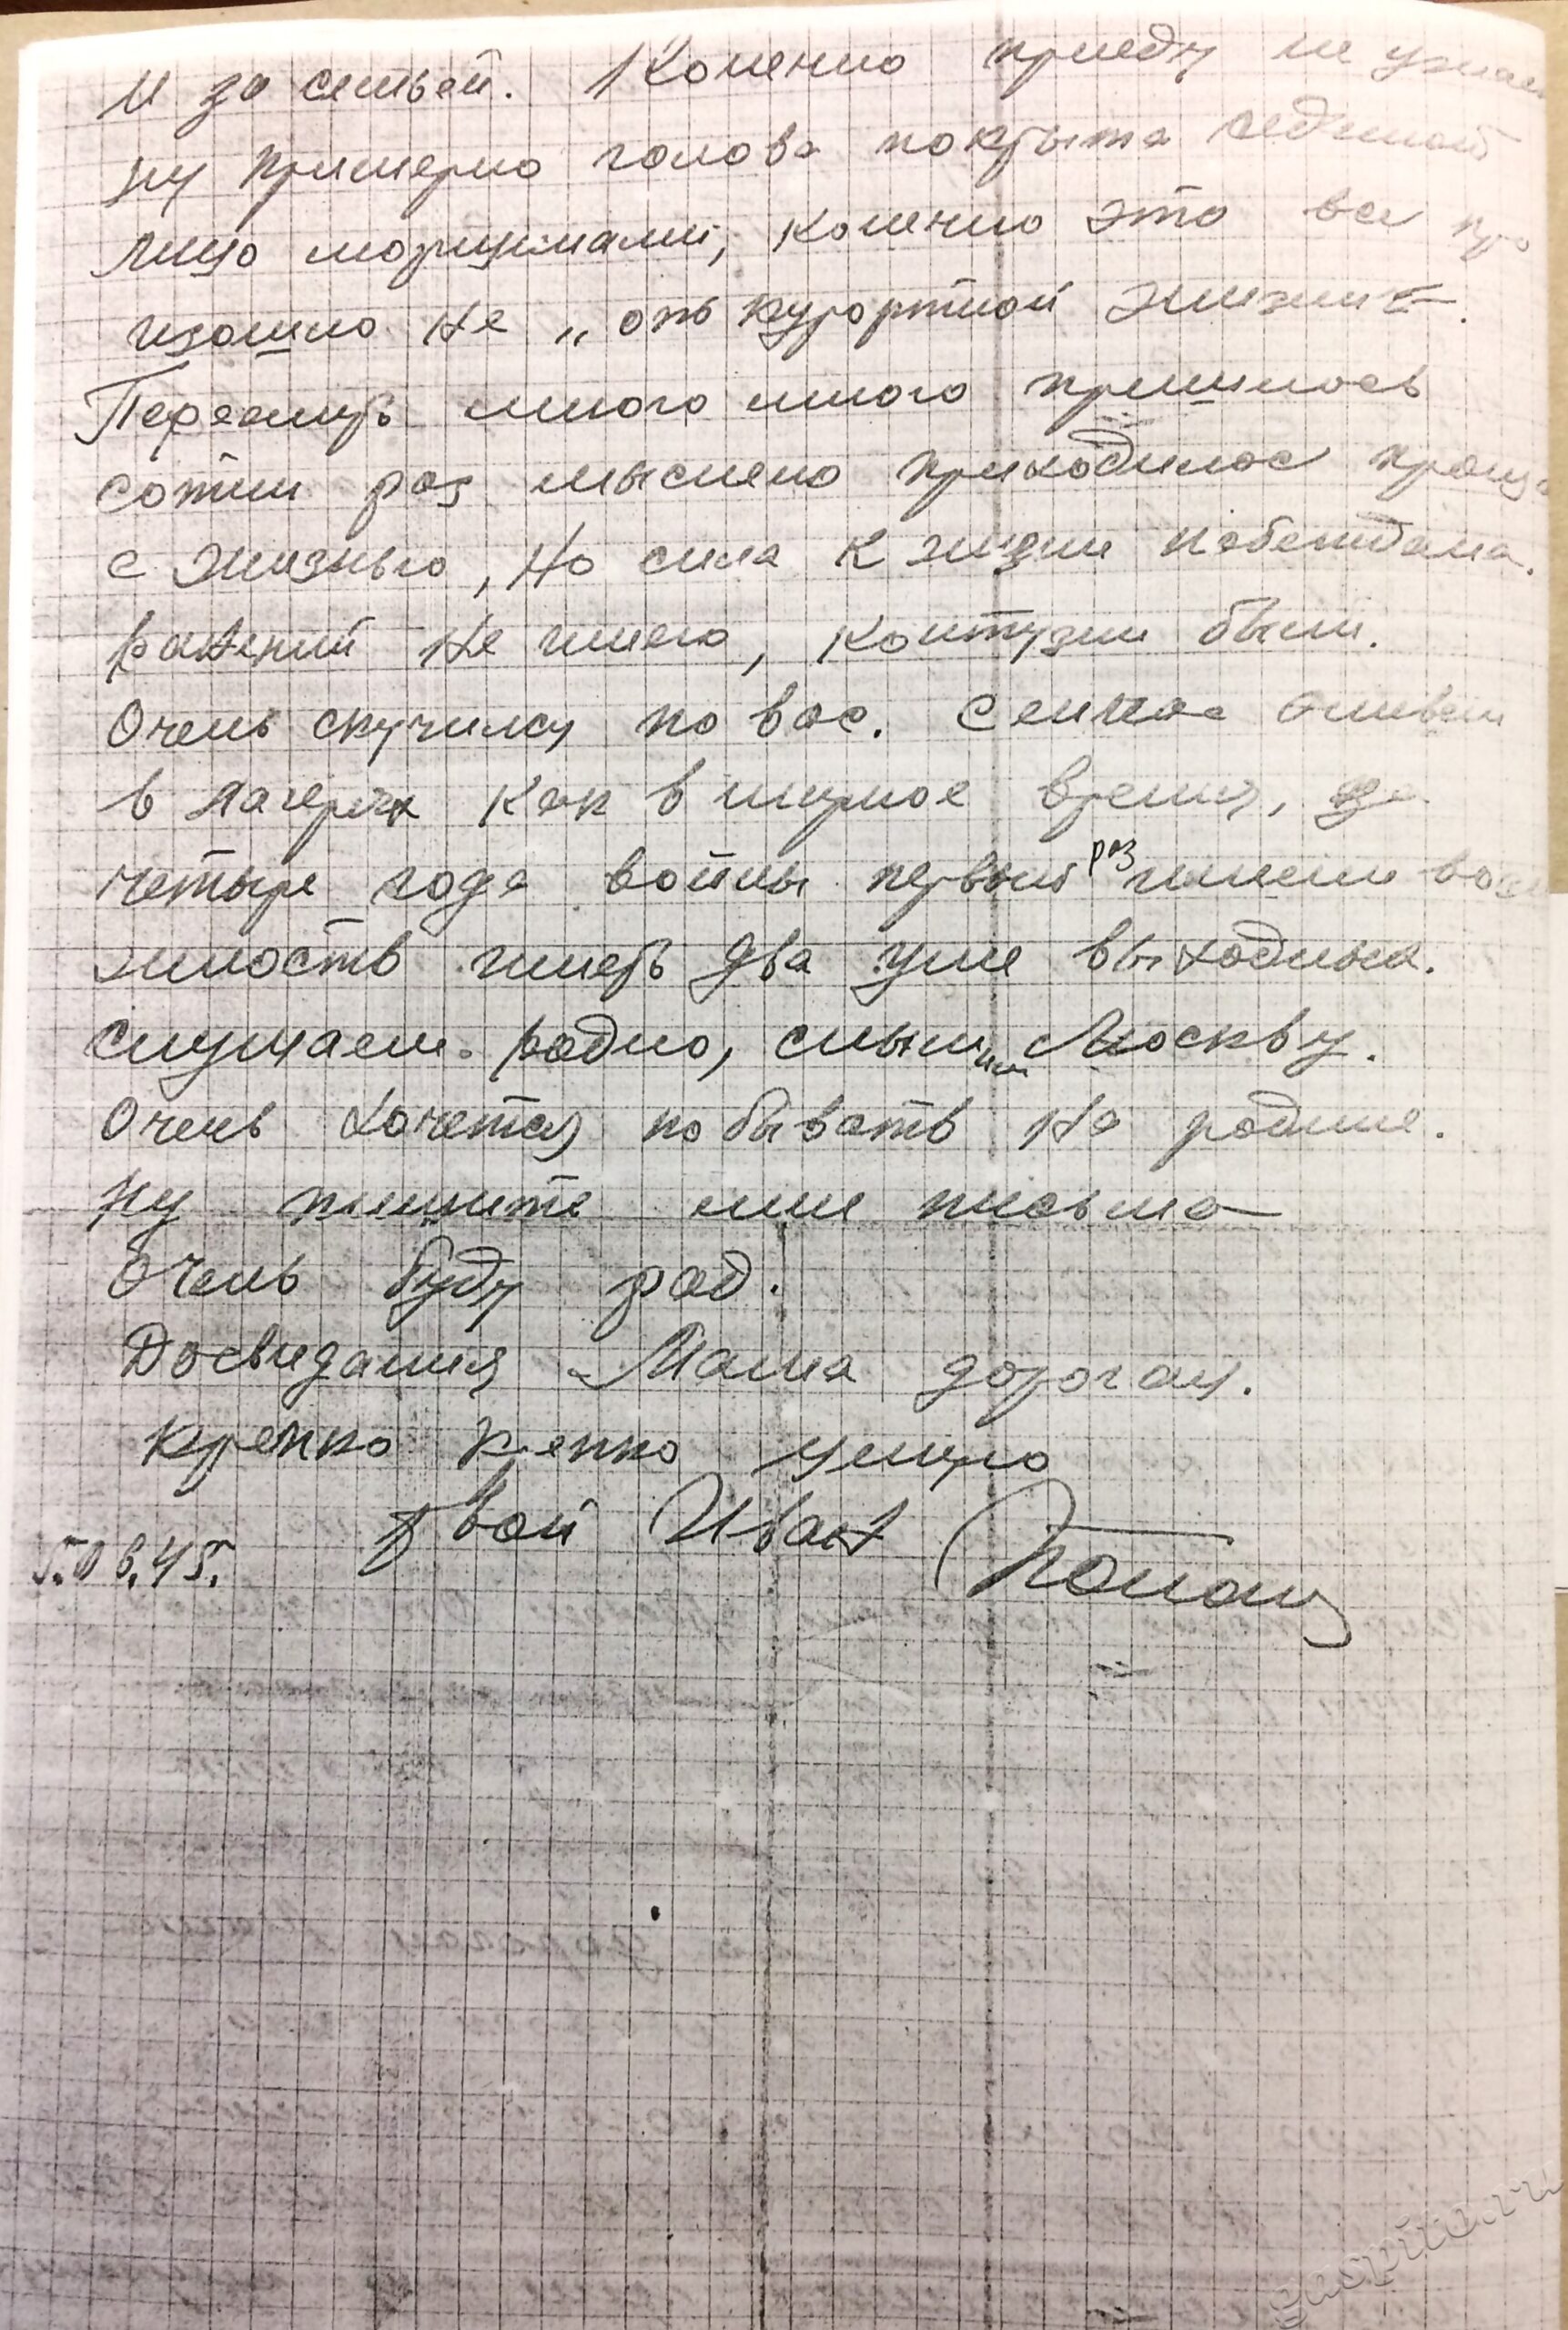 и за семьей. Конечно приеду не узнае
ну примерно голова покрыта сединой
лицо морщинами, конечно это все про
изошло не „от курортной жизни“.
Пережить много много пришлось
сотни раз мыслено приходилос проща
с жизнью, но сила к жизни побеждала.
ранений не имею, контузии были.
Очень скучился по вас. Сейчас живем
в лагерях как в мирное время, за
четыре года войны первый раз имеем воз
можность иметь два уже выходных.
слушаем радио, слышим Москву.
Очень хочется побывать на родине.
ну пишите мне письма
очень буду рад.
Досвидания Маша дорогая.
крепко крепко целую
Твой Иван
5.06.45.
gaspito.ru